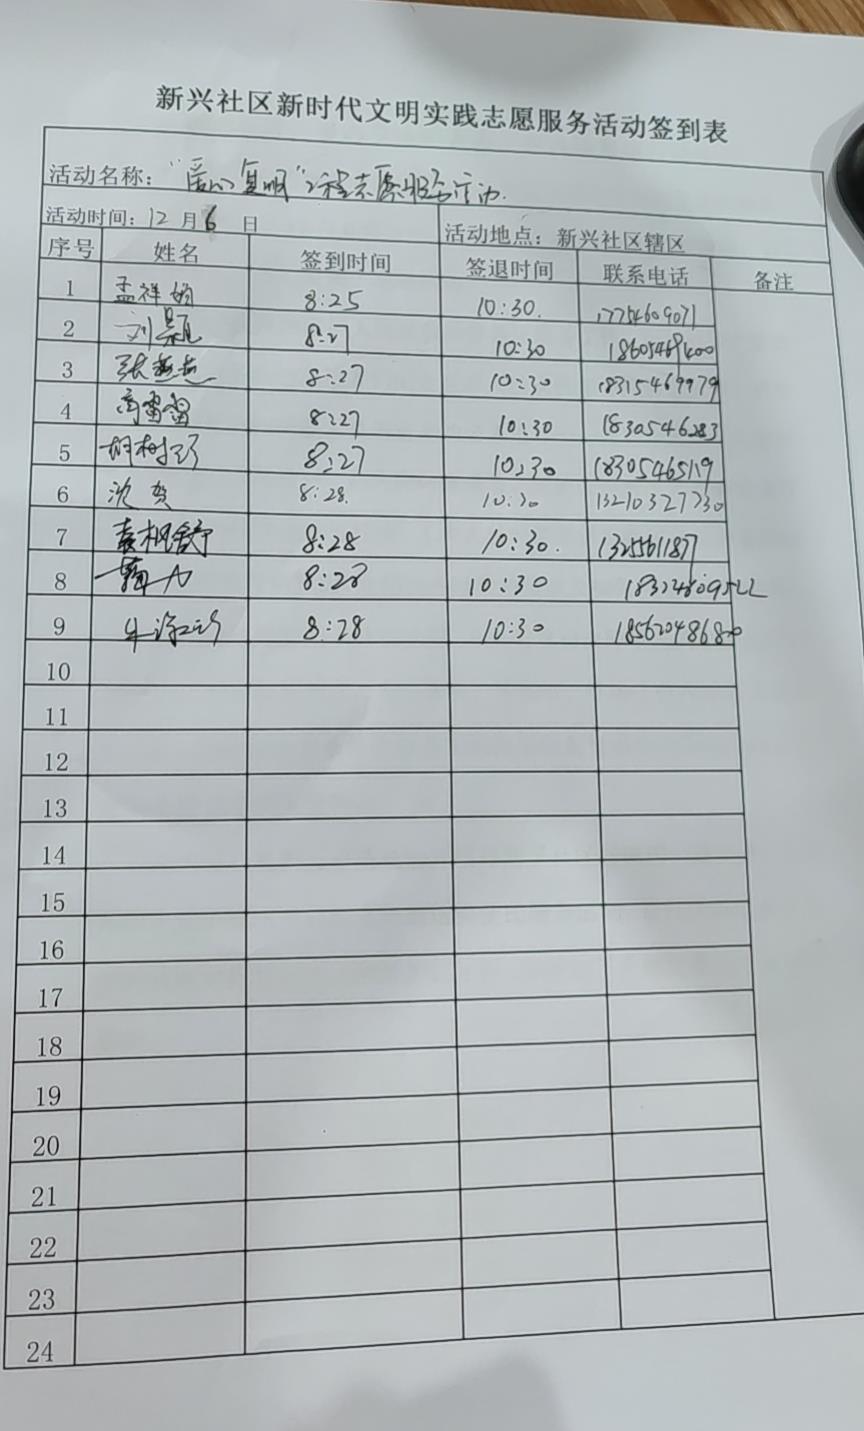 新兴社区新时代文明实践志愿服务活动签到表
活动名称："爱心复明"工程志愿服务活动.
活动时间：12月6日 活动地点：新兴社区辖区
序号 姓名 签到时间 签退时间 联系电话 备注
1 孟祥娟 8:25 10:30. 17754609071
2 刘颖 8:27 10:30 18605469400
3 张燕燕 8:27 10:30 18315469979
4 高雷雷 8:27 10:30
5 胡树珍 8:27 10:30
6 沈贺 8:28. 10:30 13210327730
7 袁枫舒 8:28 10:30.
8 8:28 10:30
9 8:28 10:30 18562048680
10
11
12
13
14
15
16
17
18
19
20
21
22
23
24